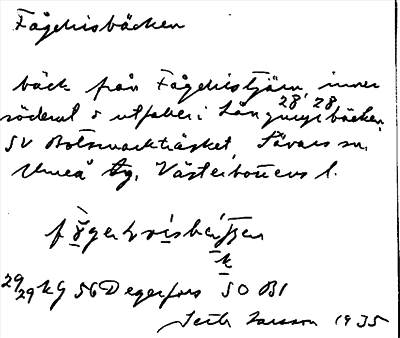 Fågelrisbäcken
bäck från Fågelristjärn, rinner
söderut o utfaller i Långmyrbäcken,
28, 28
SV Botsmarkträsket, Sävars sn,
Umeå tg, Västerbottens l.
29/29 kg 56 Degerfors SO Bl
Seth Larsson 1935